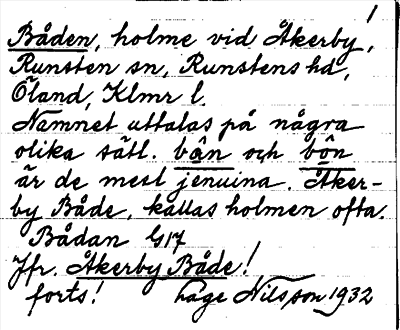 1
Båden, holme vid Åkerby,
Runsten sn, Runstens hd,
Öland, Klmr l.
Namnet uttalas på några
olika sätt. bån och bôn
är de mest jenuina. Åker-
by Både, kallas holmen ofta.
Bådan G17
Jfr. Åkerby Både!
forts! Håge Nilsson 1932